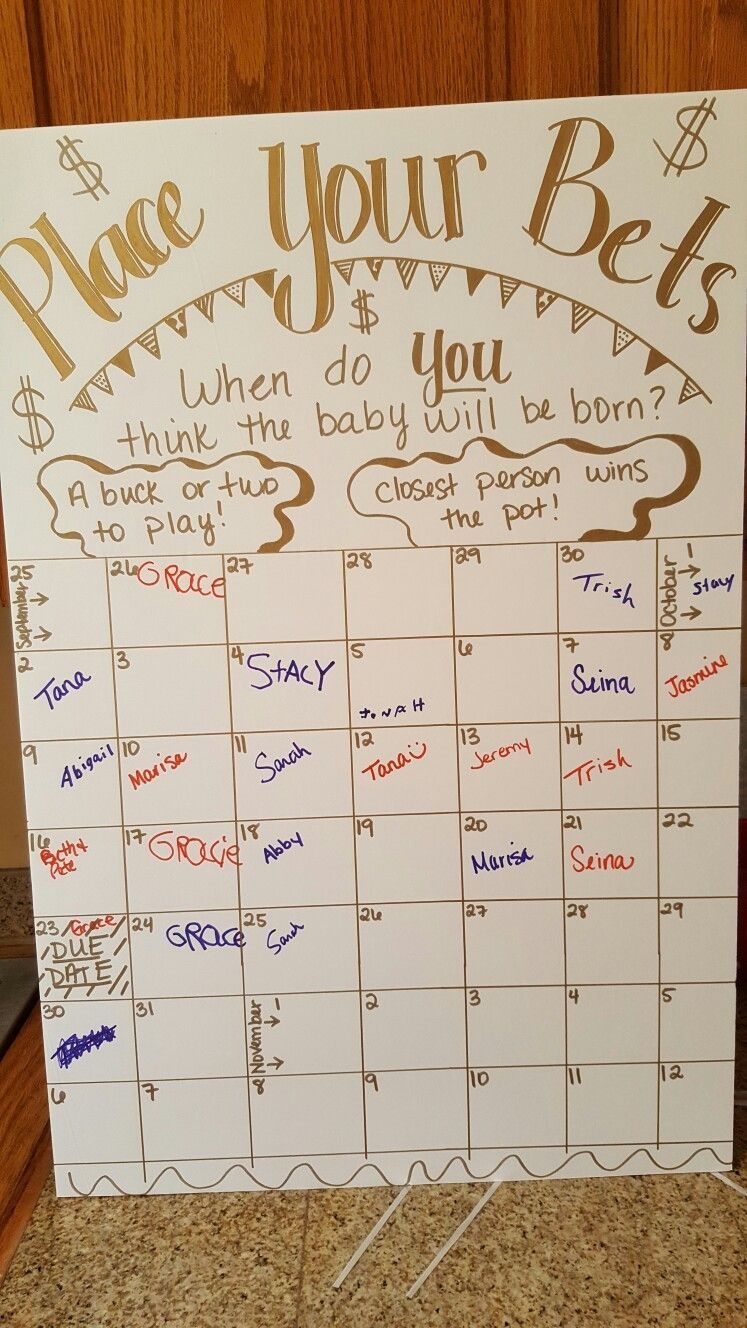 $ $
Place Your Bets
$
When do you
$ think the baby will be born?
A buck or two
to play!
closest person wins
the pot!
25 26 27 28 29 30 1
September → → GRACE Trish October → → Stacy
2 3 4 5 6 7 8
Tana STACY JONAH Seina Jasmine
9 10 11 12 13 14 15
Abigail Marisa Sarah Tana Jeremy Trish
16 17 18 19 20 21 22
Beth + Pete GRACIE Abby Marisa Seina
23 24 25 26 27 28 29
Grace GRACE Sarah
DUE
DATE
30 31 1 2 3 4 5
November → →
6 7 8 9 10 11 12